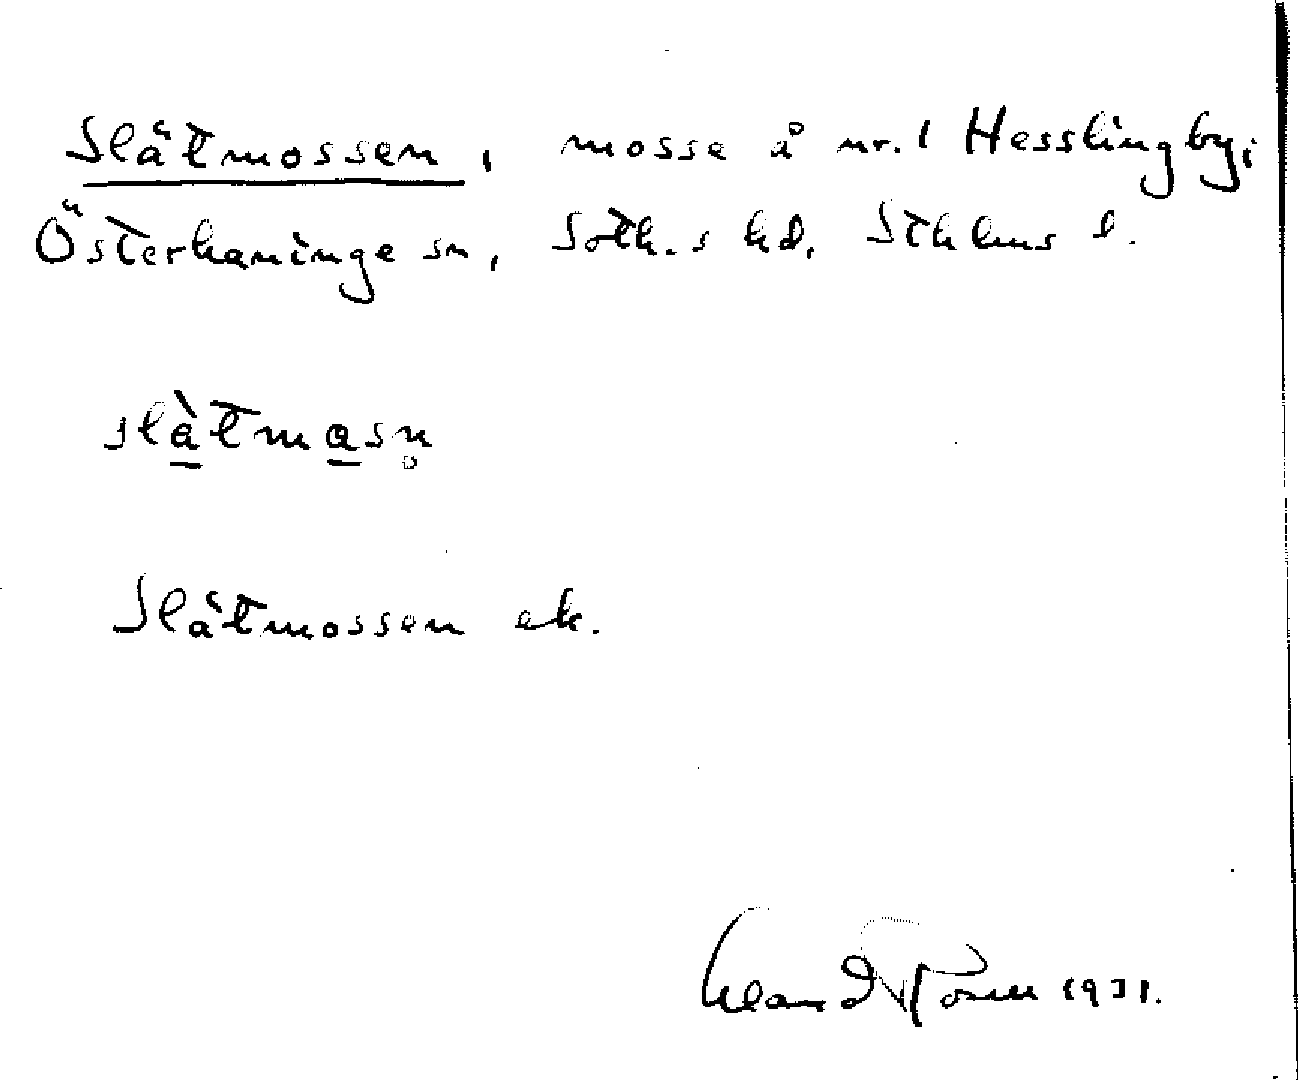 Slätmossen, mosse å nr. 1 Hesslingby,
Österhaninge sn, Soth.s hd, Sthlms l.
slàtmasn̥
Slätmossen ek.
1931.